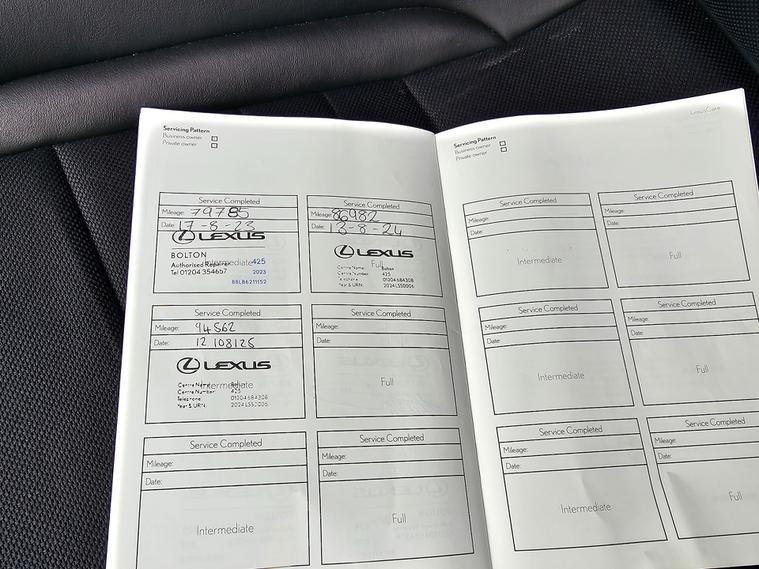 Servicing Pattern
Business owner
Private owner
Service Completed
Mileage: 79785
Date: 17-8-23
LEXUS
BOLTON
Authorised Repairer
Intermediate 425
Tel 01204 354667
2023
Service Completed
Mileage: 86982
Date: 13-8-24
LEXUS
Full
Centre Name: Bolton
Centre Number: 425
Telephone: 01204 684308
Year & URN: 2024LSS0006
Service Completed
Mileage: 94562
Date: 12/08/25
LEXUS
Intermediate
Centre Name: Bolton
Centre Number: 425
Telephone: 01204 684308
Year & URN:
Service Completed
Mileage:
Date:
Full
Service Completed
Mileage:
Date:
Intermediate
Service Completed
Mileage:
Date:
Full
LexusCare
Servicing Pattern
Business owner
Private owner
Service Completed
Mileage:
Date:
Intermediate
Service Completed
Mileage:
Date:
Full
Service Completed
Mileage:
Date:
Intermediate
Service Completed
Mileage:
Date:
Full
Service Completed
Mileage:
Date:
Intermediate
Service Completed
Mileage:
Date:
Full